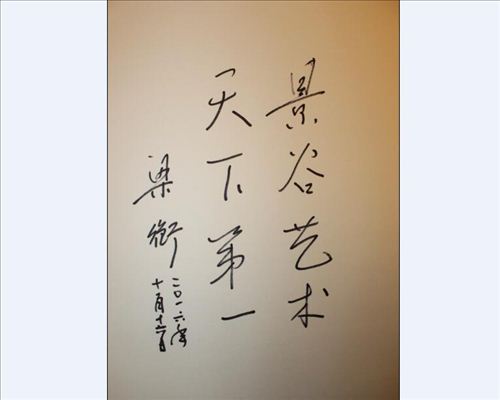 景谷艺术
天下第一
梁衡
二〇一六年
十月十六日